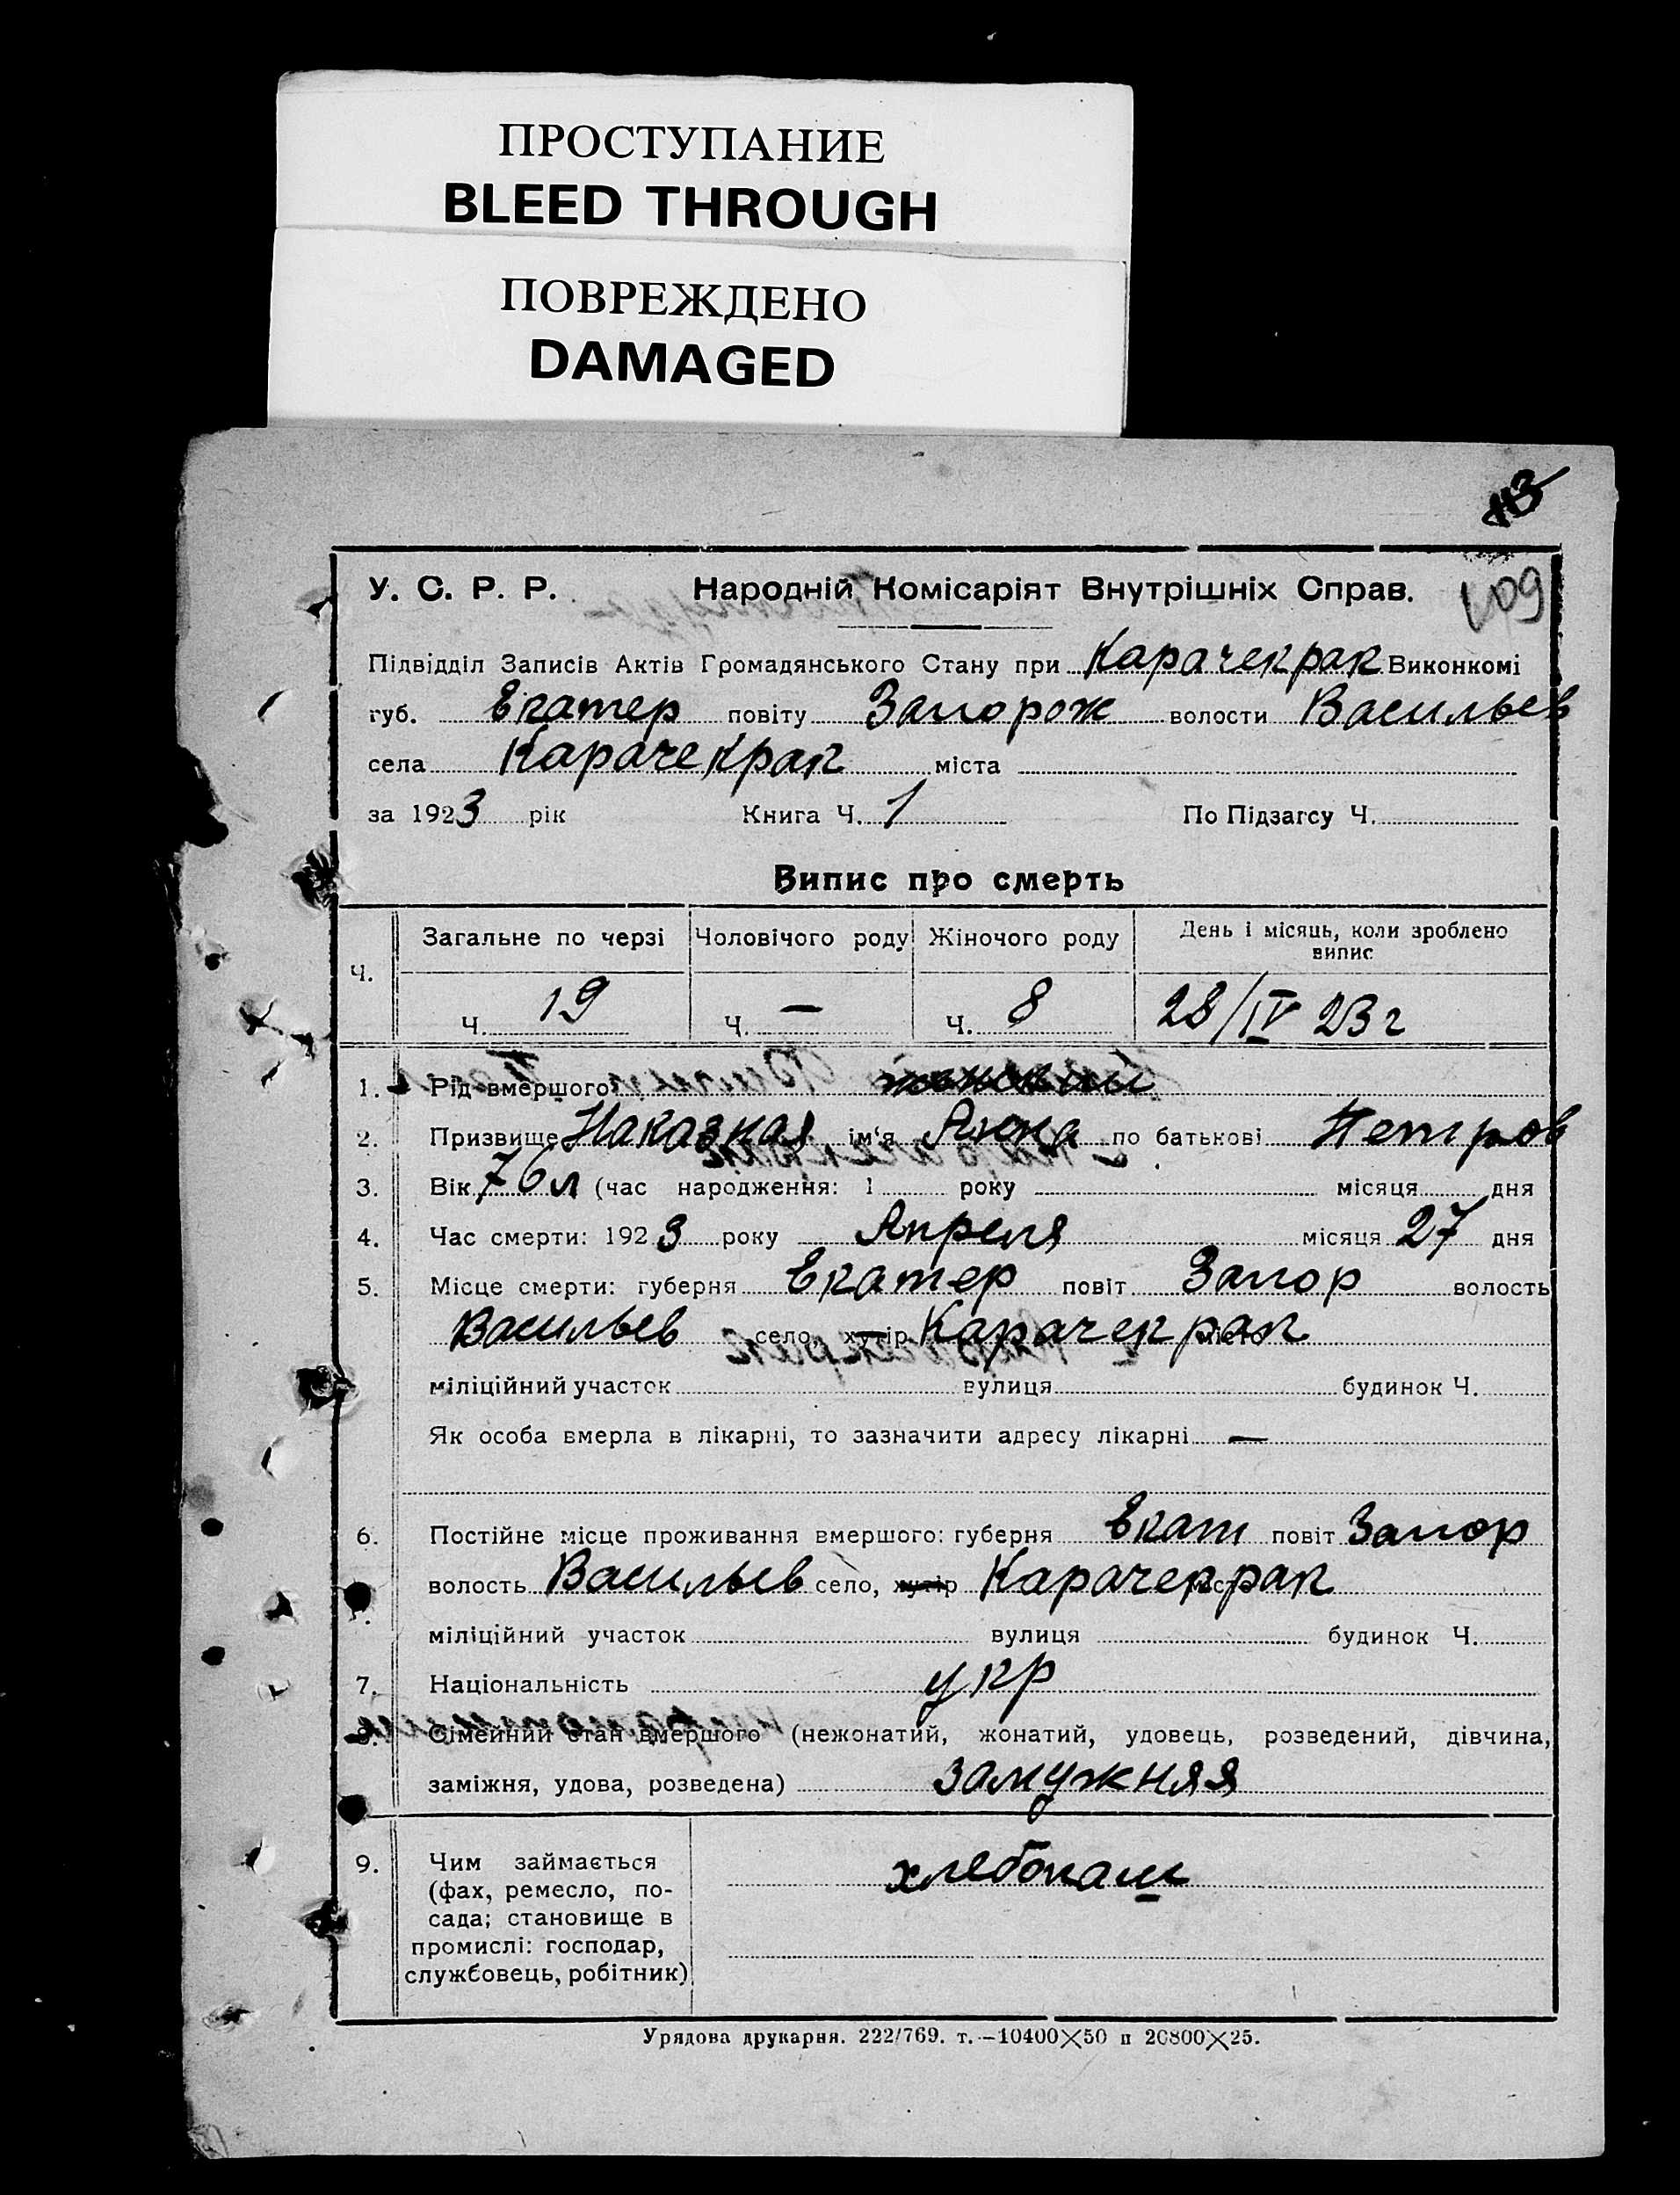 ПРОСТУПАНИЕ
BLEED THROUGH
ПОВРЕЖДЕНО
DAMAGED
113
У. С. Р. Р. Народній Комісаріят Внутрішніх Справ. 109
Підвідділ Записів Актів Громадянського Стану при Карачекрак Виконкомі
губ. Екатер повіту Запорож волости Васильев
села Карачекрак міста
за 1923 рік Книга Ч. 1 По Підзагсу Ч.
Випис про смерть
Ч. Загальне по черзі Чоловічого роду Жіночого роду День і місяць, коли зроблено випис
Ч. 19 Ч. — Ч. 8 28/IV 23 г
1. Рід вмершого женский
2. Призвище Наказная ім'я Анна по батькові Петров
3. Вік 76 л (час народження: 1 року місяця дня
4. Час смерти: 1923 року Апреля місяця 27 дня
5. Місце смерти: губерня Екатер повіт Запор волость
Васильев село, хутір Карачекрак місто
міліційний участок вулиця будинок Ч.
Як особа вмерла в лікарні, то зазначити адресу лікарні —
6. Постійне місце проживання вмершого: губерня Екат повіт Запор
волость Васильев село, хутір Карачекрак
міліційний участок вулиця будинок Ч.
7. Національність укр
8. Сімейний стан вмершого (нежонатий, жонатий, удовець, розведений, дівчина,
заміжня, удова, розведена) замужняя
9. Чим займається хлебопаш
(фах, ремесло, по-
сада; становище в
промислі: господар,
службовець, робітник)
Урядова друкарня. 222/769. т.—10400×50 п 20800×25.